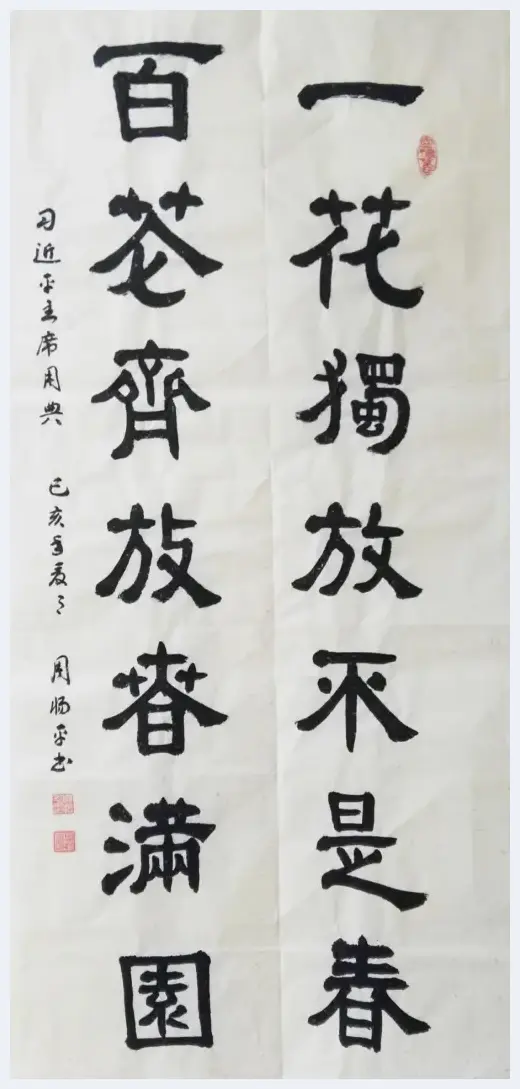 一花獨放不是春
百花齊放春滿園
习近平主席用典
己亥年夏月
周旸平书